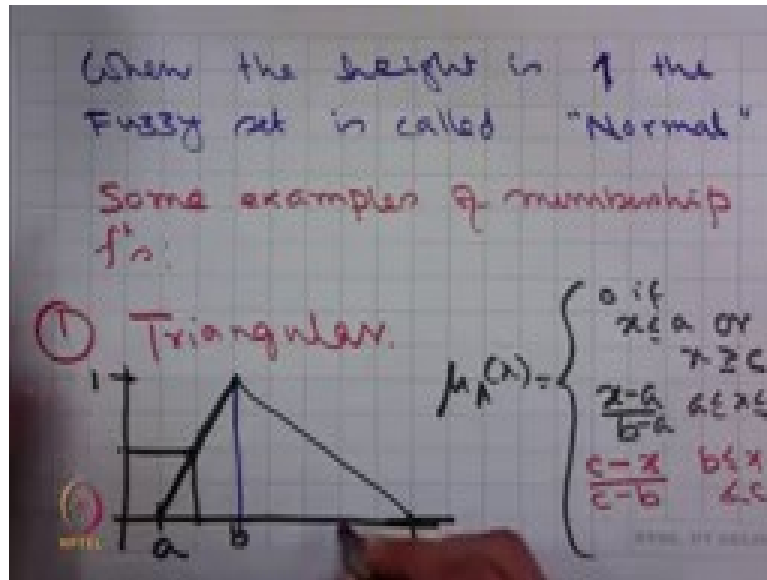 When the height is 1 the
Fuzzy set is called "Normal"
Some examples of membership
f's:
① Triangular.
μA(x) =
0 if
x ≤ a or
x ≥ c
x-a
b-a
a ≤ x ≤
c-x
c-b
b ≤ x
≤ c
1
a
b
NPTEL